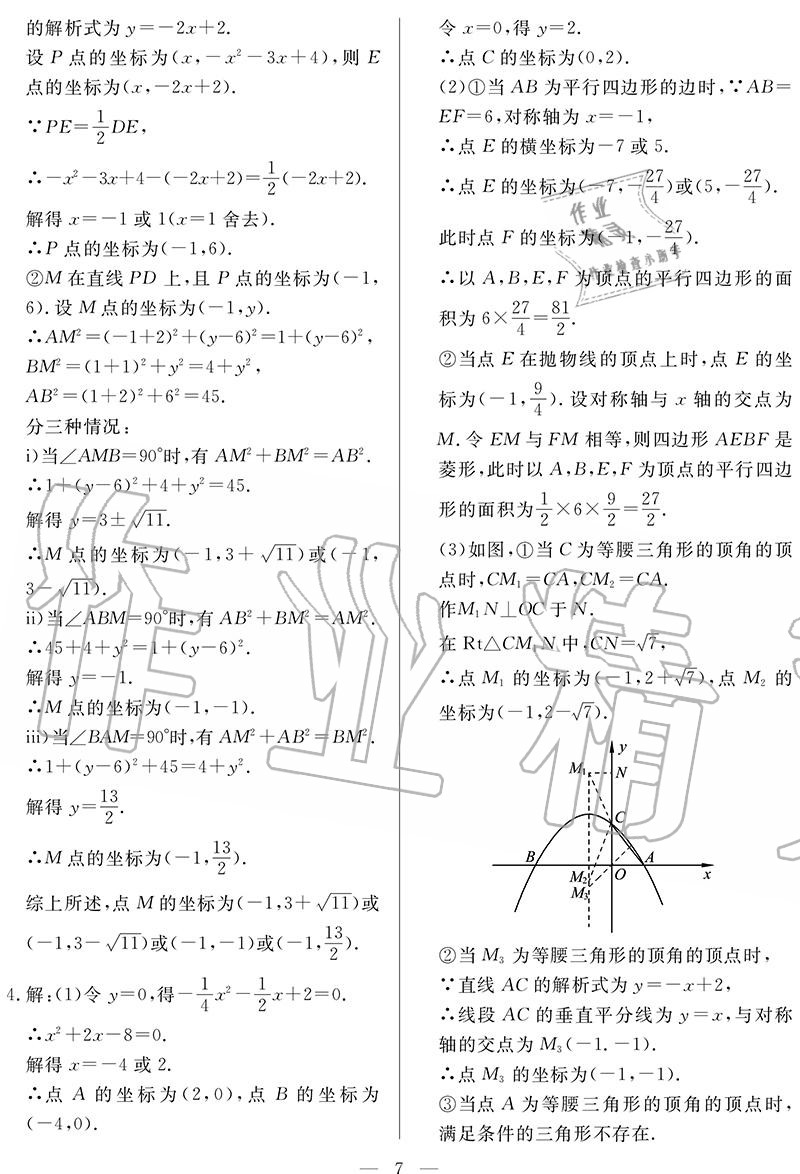 的解析式为 y=-2x+2.
设 P 点的坐标为(x,-x²-3x+4),则 E
点的坐标为(x,-2x+2).
∵PE=1/2DE,
∴-x²-3x+4-(-2x+2)=1/2(-2x+2).
解得 x=-1 或 1(x=1 舍去).
∴P 点的坐标为(-1,6).
②M 在直线 PD 上,且 P 点的坐标为(-1,
6).设 M 点的坐标为(-1,y).
∴AM²=(-1+2)²+(y-6)²=1+(y-6)²,
BM²=(1+1)²+y²=4+y²,
AB²=(1+2)²+6²=45.
分三种情况:
ⅰ)当∠AMB=90°时,有 AM²+BM²=AB².
∴1+(y-6)²+4+y²=45.
解得 y=3±√11.
∴M 点的坐标为(-1,3+√11)或(-1,
3-√11).
ⅱ)当∠ABM=90°时,有 AB²+BM²=AM².
∴45+4+y²=1+(y-6)².
解得 y=-1.
∴M 点的坐标为(-1,-1).
ⅲ)当∠BAM=90°时,有 AM²+AB²=BM².
∴1+(y-6)²+45=4+y².
解得 y=13/2.
∴M 点的坐标为(-1,13/2).
综上所述,点 M 的坐标为(-1,3+√11)或
(-1,3-√11)或(-1,-1)或(-1,13/2).
4.解:(1)令 y=0,得-1/4x²-1/2x+2=0.
∴x²+2x-8=0.
解得 x=-4 或 2.
∴点 A 的坐标为(2,0),点 B 的坐标为
(-4,0).
令 x=0,得 y=2.
∴点 C 的坐标为(0,2).
(2)①当 AB 为平行四边形的边时,∵AB=
EF=6,对称轴为 x=-1,
∴点 E 的横坐标为-7 或 5.
∴点 E 的坐标为(-7,-27/4)或(5,-27/4).
此时点 F 的坐标为(-1,-27/4).
∴以 A,B,E,F 为顶点的平行四边形的面
积为 6×27/4=81/2.
②当点 E 在抛物线的顶点上时,点 E 的坐
标为(-1,9/4).设对称轴与 x 轴的交点为
M.令 EM 与 FM 相等,则四边形 AEBF 是
菱形,此时以 A,B,E,F 为顶点的平行四边
形的面积为1/2×6×9/2=27/2.
(3)如图,①当 C 为等腰三角形的顶角的顶
点时,CM₁=CA,CM₂=CA.
作M₁N⊥OC 于 N.
在 Rt△CM₁N 中,CN=√7,
∴点 M₁ 的坐标为(-1,2+√7),点 M₂ 的
坐标为(-1,2-√7).
y
M₁
N
C
B
A
M₂
O
x
M₃
②当 M₃ 为等腰三角形的顶角的顶点时,
∵直线 AC 的解析式为 y=-x+2,
∴线段 AC 的垂直平分线为 y=x,与对称
轴的交点为 M₃(-1.-1).
∴点 M₃ 的坐标为(-1,-1).
③当点 A 为等腰三角形的顶角的顶点时,
满足条件的三角形不存在.
— 7 —
作业精
作业